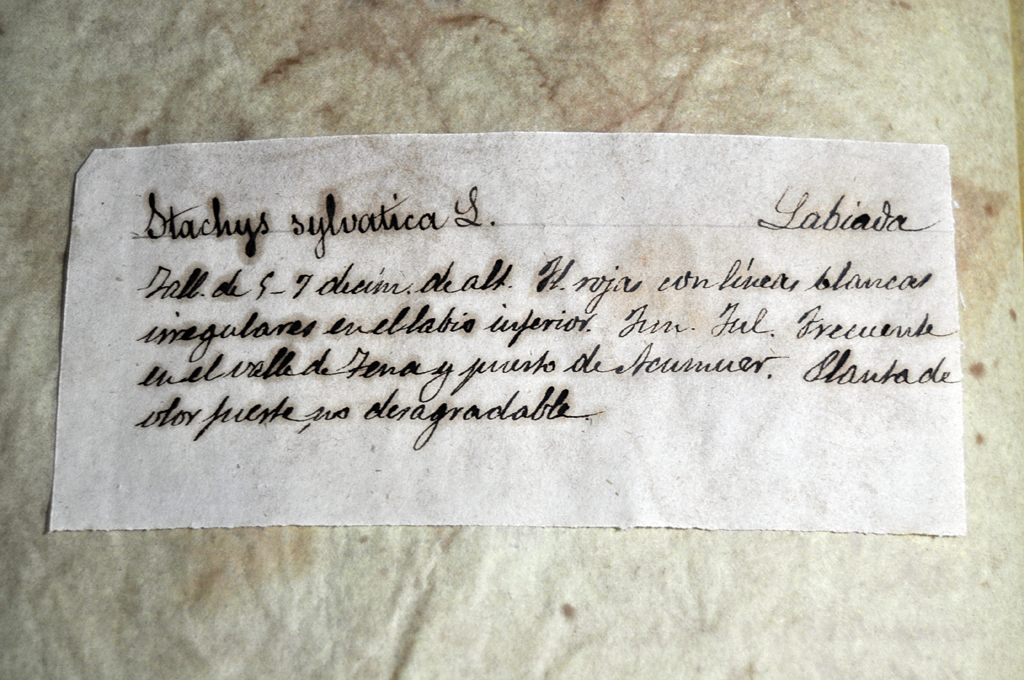 Stachys sylvatica L. Labiada
Tall. de 5-7 decim. de alt. Fl. rojas con líneas blancas
irregulares en el labio inferior. Jun. Jul. Frecuente
en el valle de Tena y puerto de Acumuer. Planta de
olor fuerte, no desagradable.